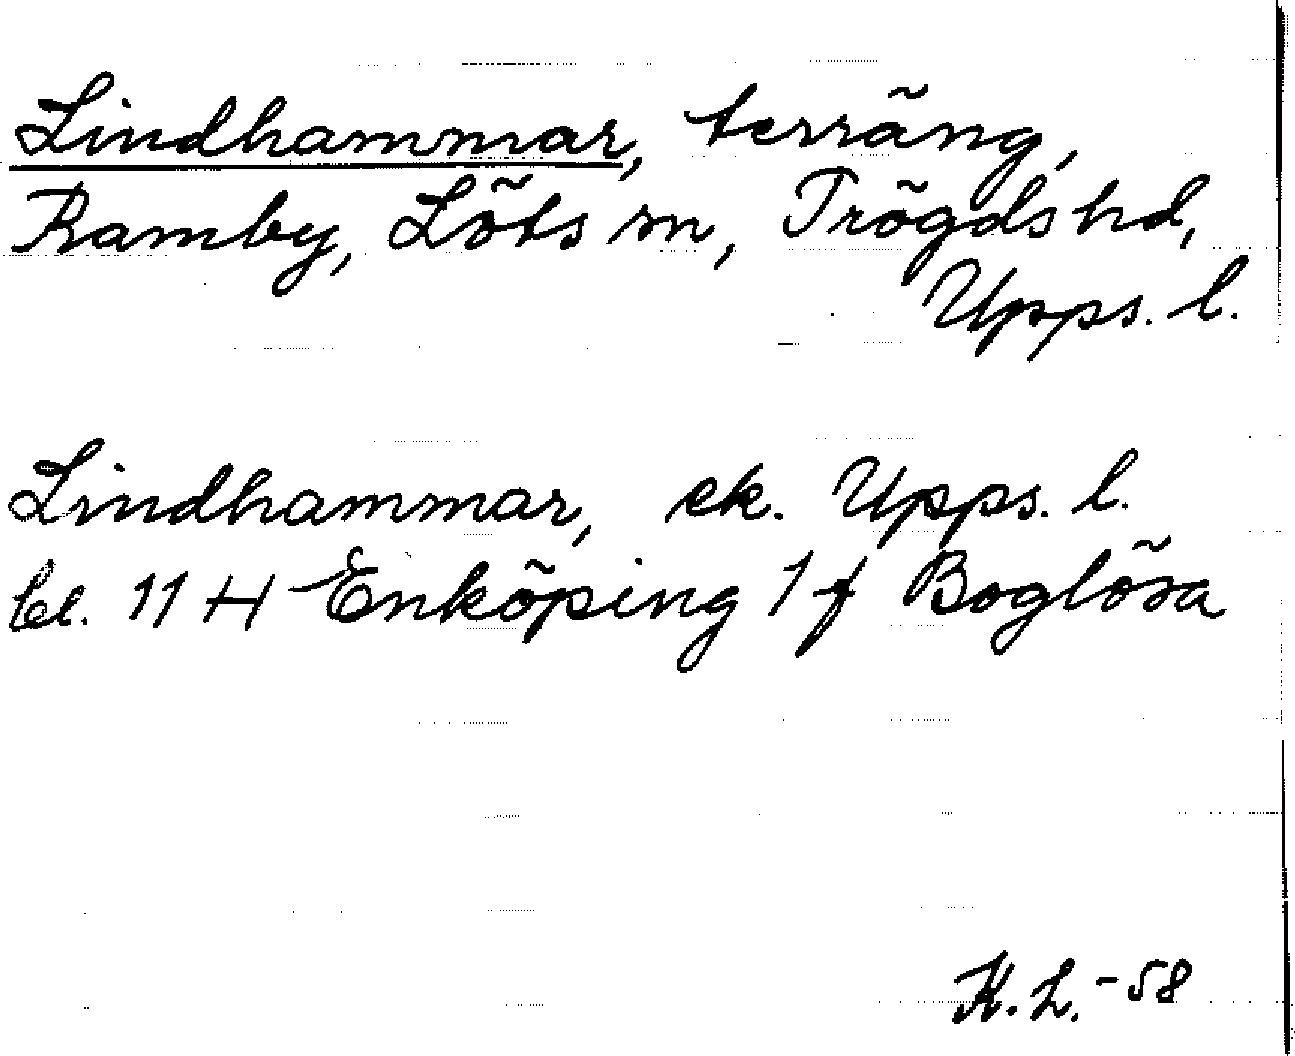 Lindhammar, terräng,
Ramby, Löts sn, Trögds hd,
Upps. l.
Lindhammar, ek. Upps. l.
bl. 11 H Enköping 1 f Boglösa
K. L. -58